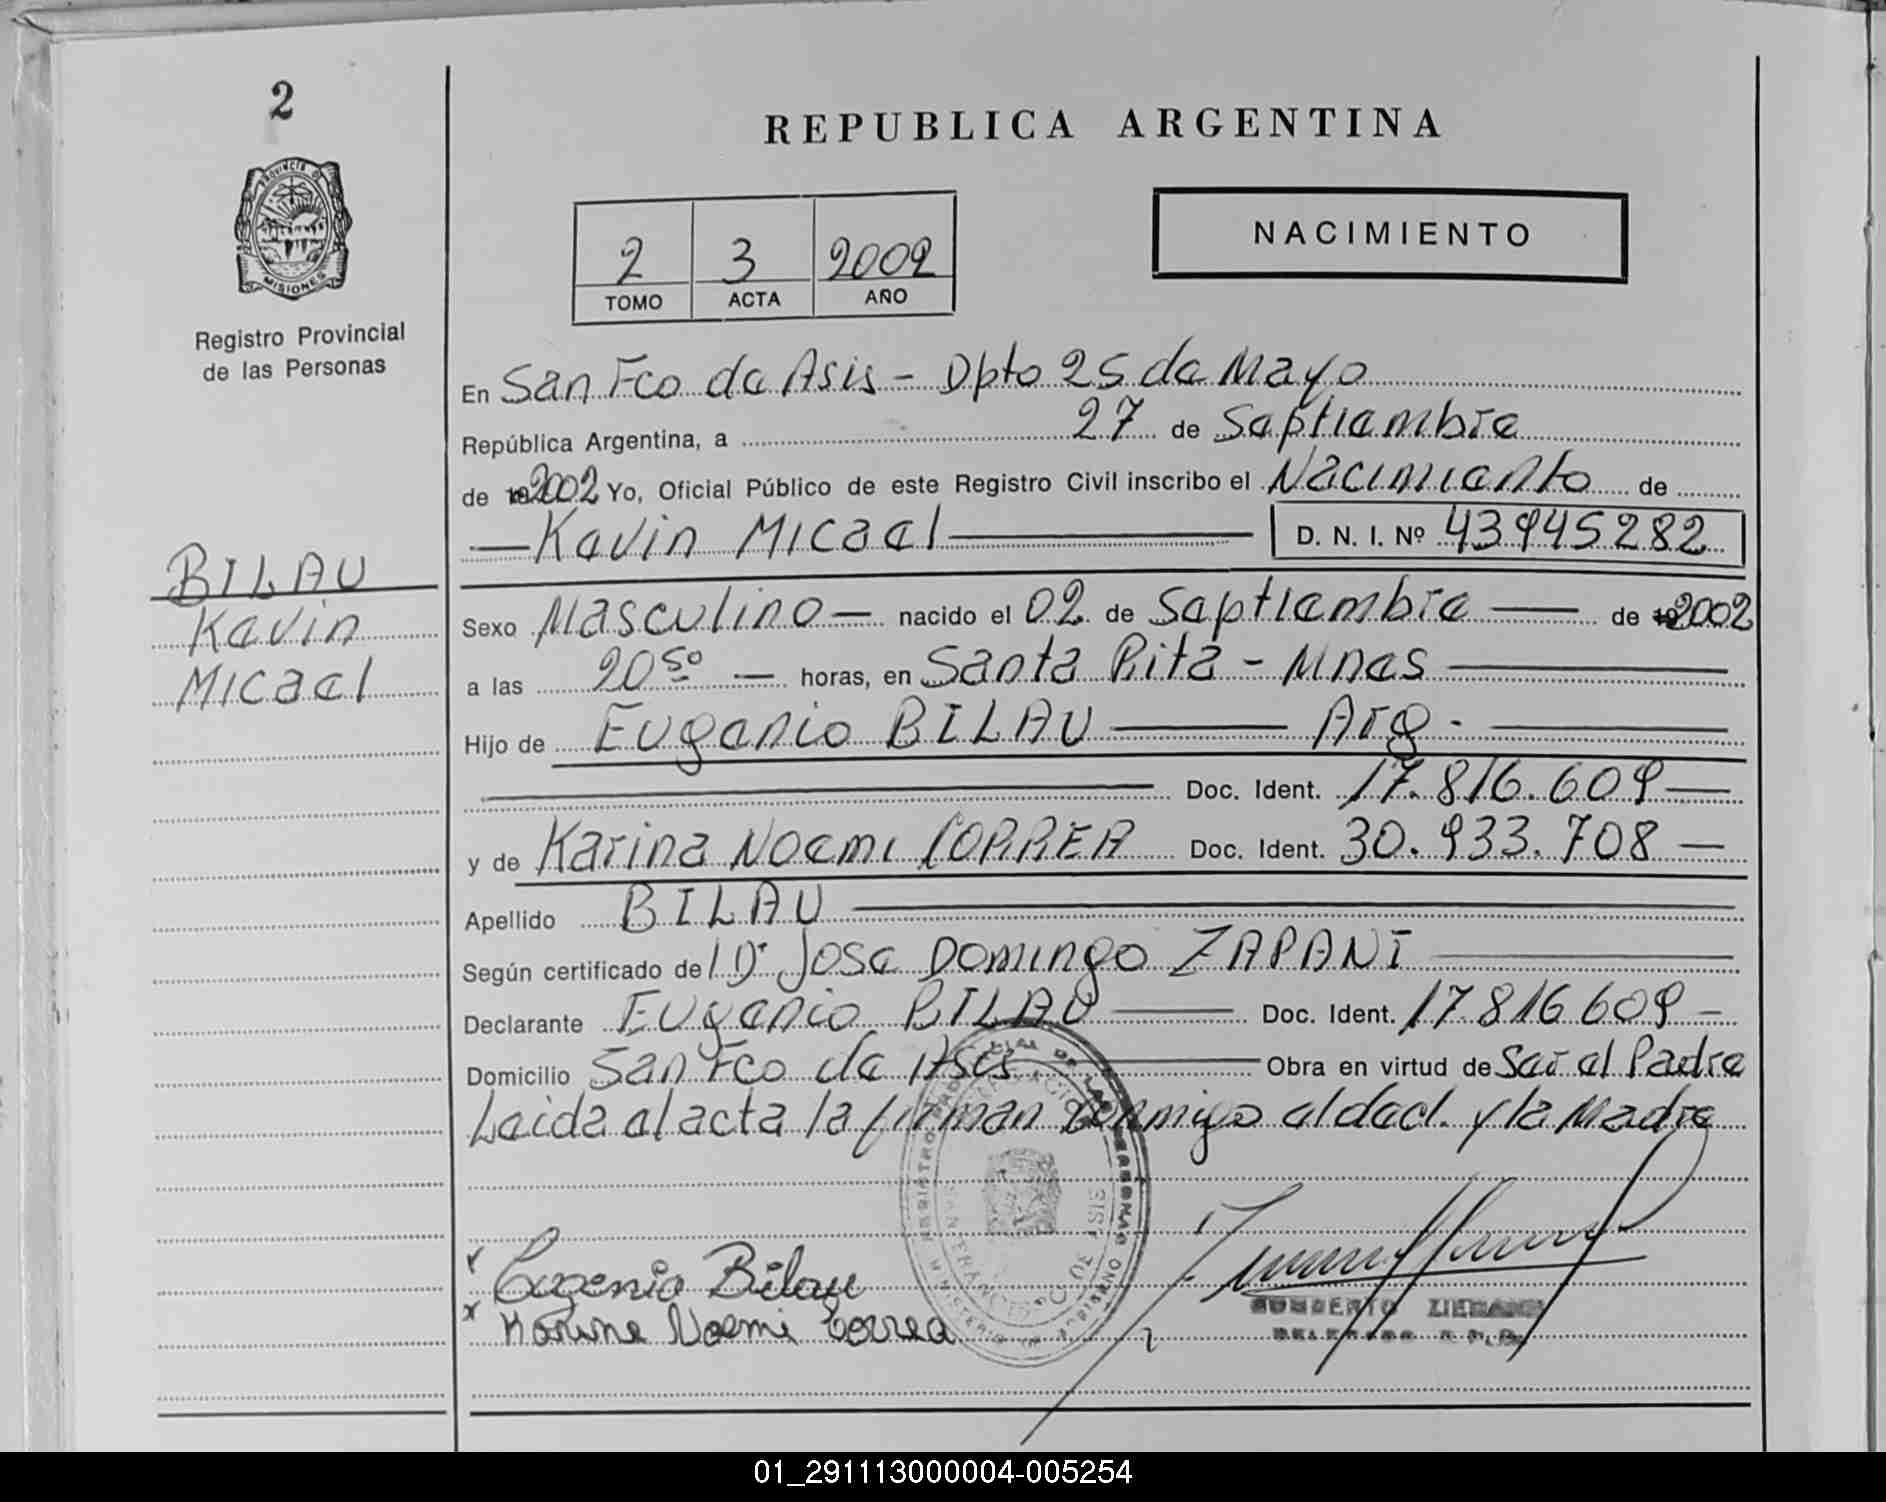 2
REPUBLICA ARGENTINA
PROVINCIA DE
MISIONES
Registro Provincial
de las Personas
2 3 2002
TOMO ACTA AÑO
NACIMIENTO
En San Fco de Asis - Dpto 25 de Mayo
República Argentina, a 27 de Septiembre
de 2002 Yo, Oficial Público de este Registro Civil inscribo el Nacimiento de
Kevin Micael D. N. I. Nº 43945282
BILAU
Kevin
Micael
Sexo Masculino nacido el 02 de Septiembre de 2002
a las 20 50 horas, en Santa Rita - Mnes
Hijo de Eugenio BILAU Arg.
Doc. Ident. 17.816.609
y de Karina Noemi CORREA Doc. Ident. 30.933.708
Apellido BILAU
Según certificado del Dr Jose Domingo ZAPANI
Declarante Eugenio BILAU Doc. Ident. 17.816.609
Domicilio San Fco de Asis Obra en virtud de Ser el Padre
Leida el acta la firman conmigo el decl. y la Madre
Eugenio Bilau
x Karina Noemi Correa
01_291113000004-005254